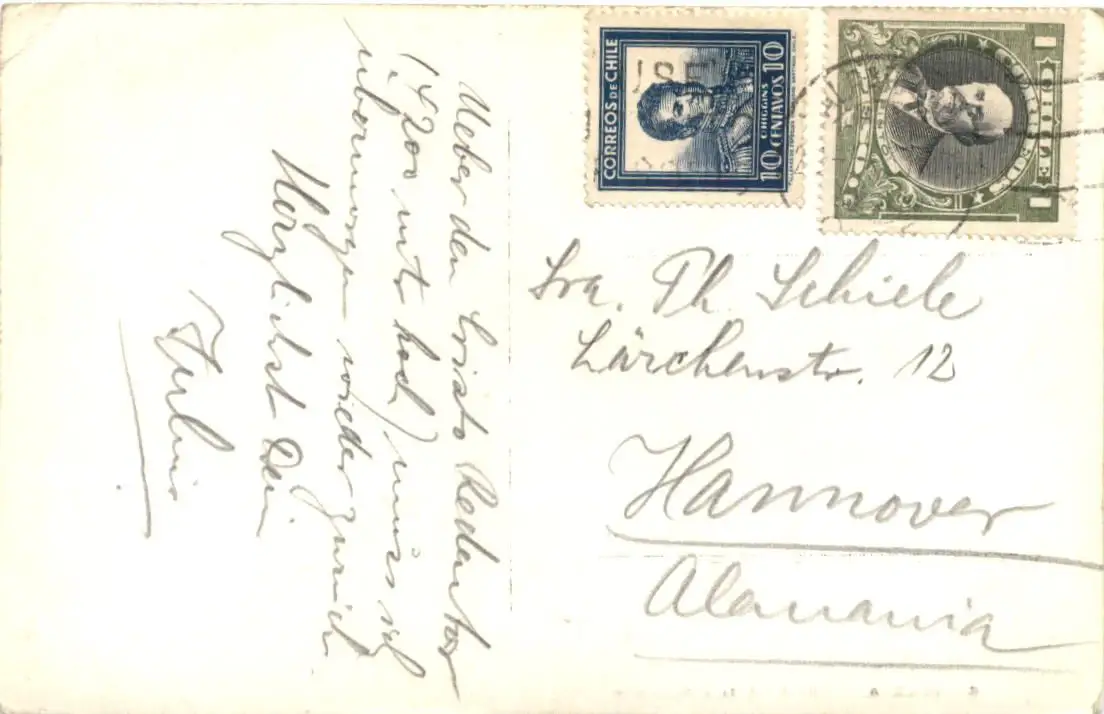 Ueber den Cristo Redentor
(4200 mtr hoch) muss ich
übermorgen wieder zurück
Herzlichst Dein
CORREOS DE CHILE
O'HIGGINS
10 CENTAVOS 10
1 PESO 1
Sra. Th. Schiele
Lärchenstr. 12
Hannover
Alamania